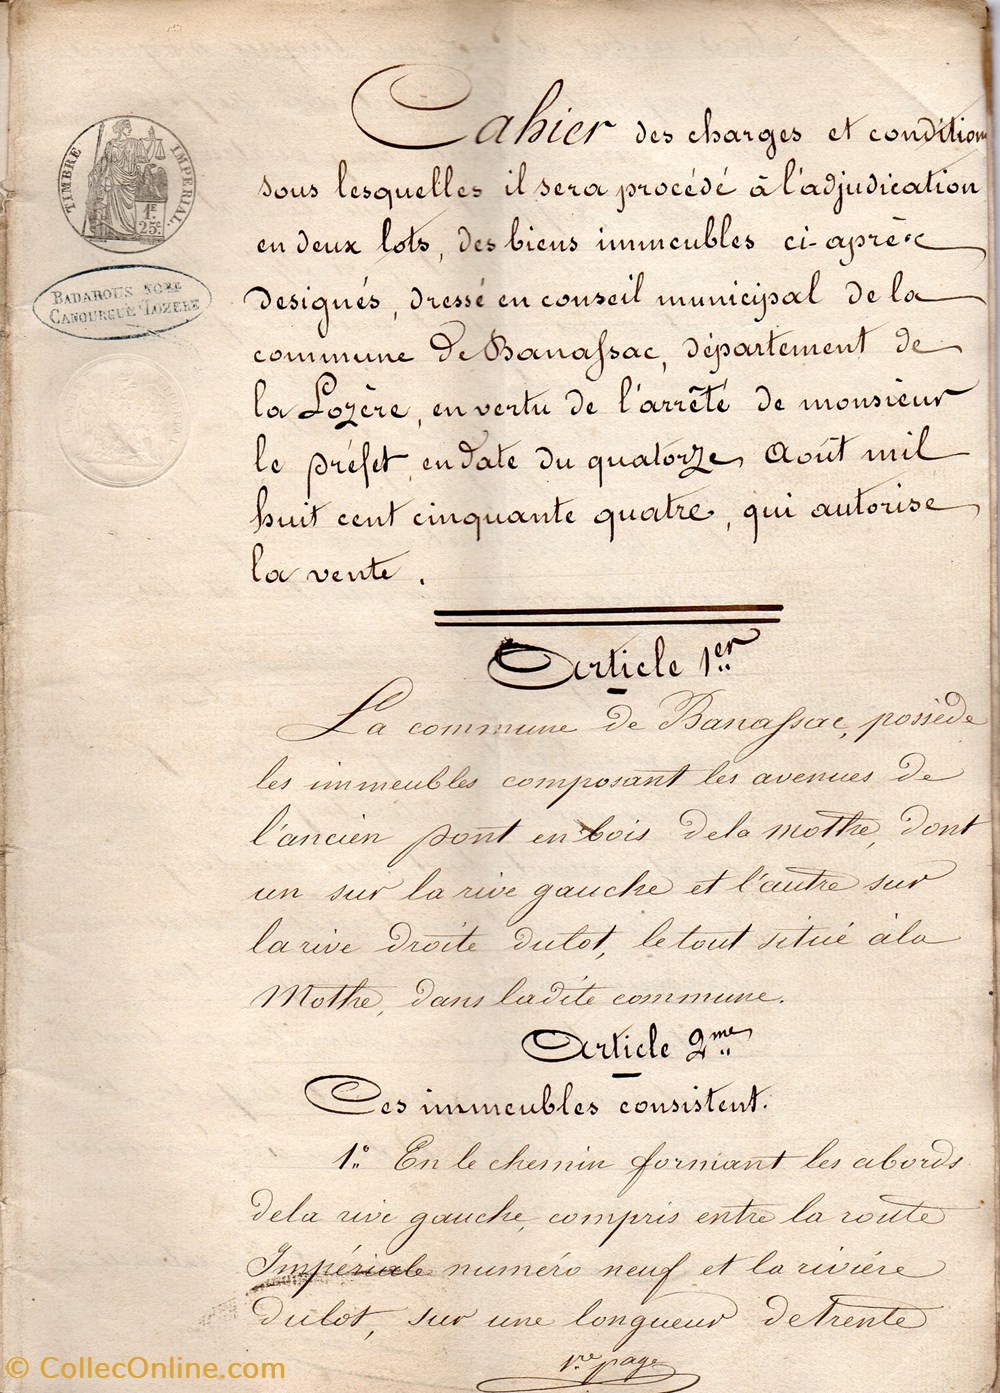 Cahier des charges et conditions
sous lesquelles il sera procédé à l'adjudication
en deux lots, des biens immeubles ci-après
designés, dressé en conseil municipal de la
commune de Banassac, département de
la Lozère, en vertu de l'arrêté de monsieur
le préfet, en date du quatorze Août mil
huit cent cinquante quatre, qui autorise
la vente.
TIMBRE IMPERIAL
1F.
25c.
BADAROUS NORE
CANOURGUE LOZERE
Article 1er
La commune de Banassac, possède
les immeubles composant les avenues de
l'ancien pont en bois dela mothe, dont
un sur la rive gauche et l'autre sur
la rive droite dulot, le tout situé àla
Mothe, dans ladite commune.
Article 2me
Ces immeubles consistent.
1o En le chemin formant les abords
dela rive gauche, compris entre la route
Impériale numéro neuf et la rivière
dulot, sur une longueur de trente
1re page
© CollecOnline.com